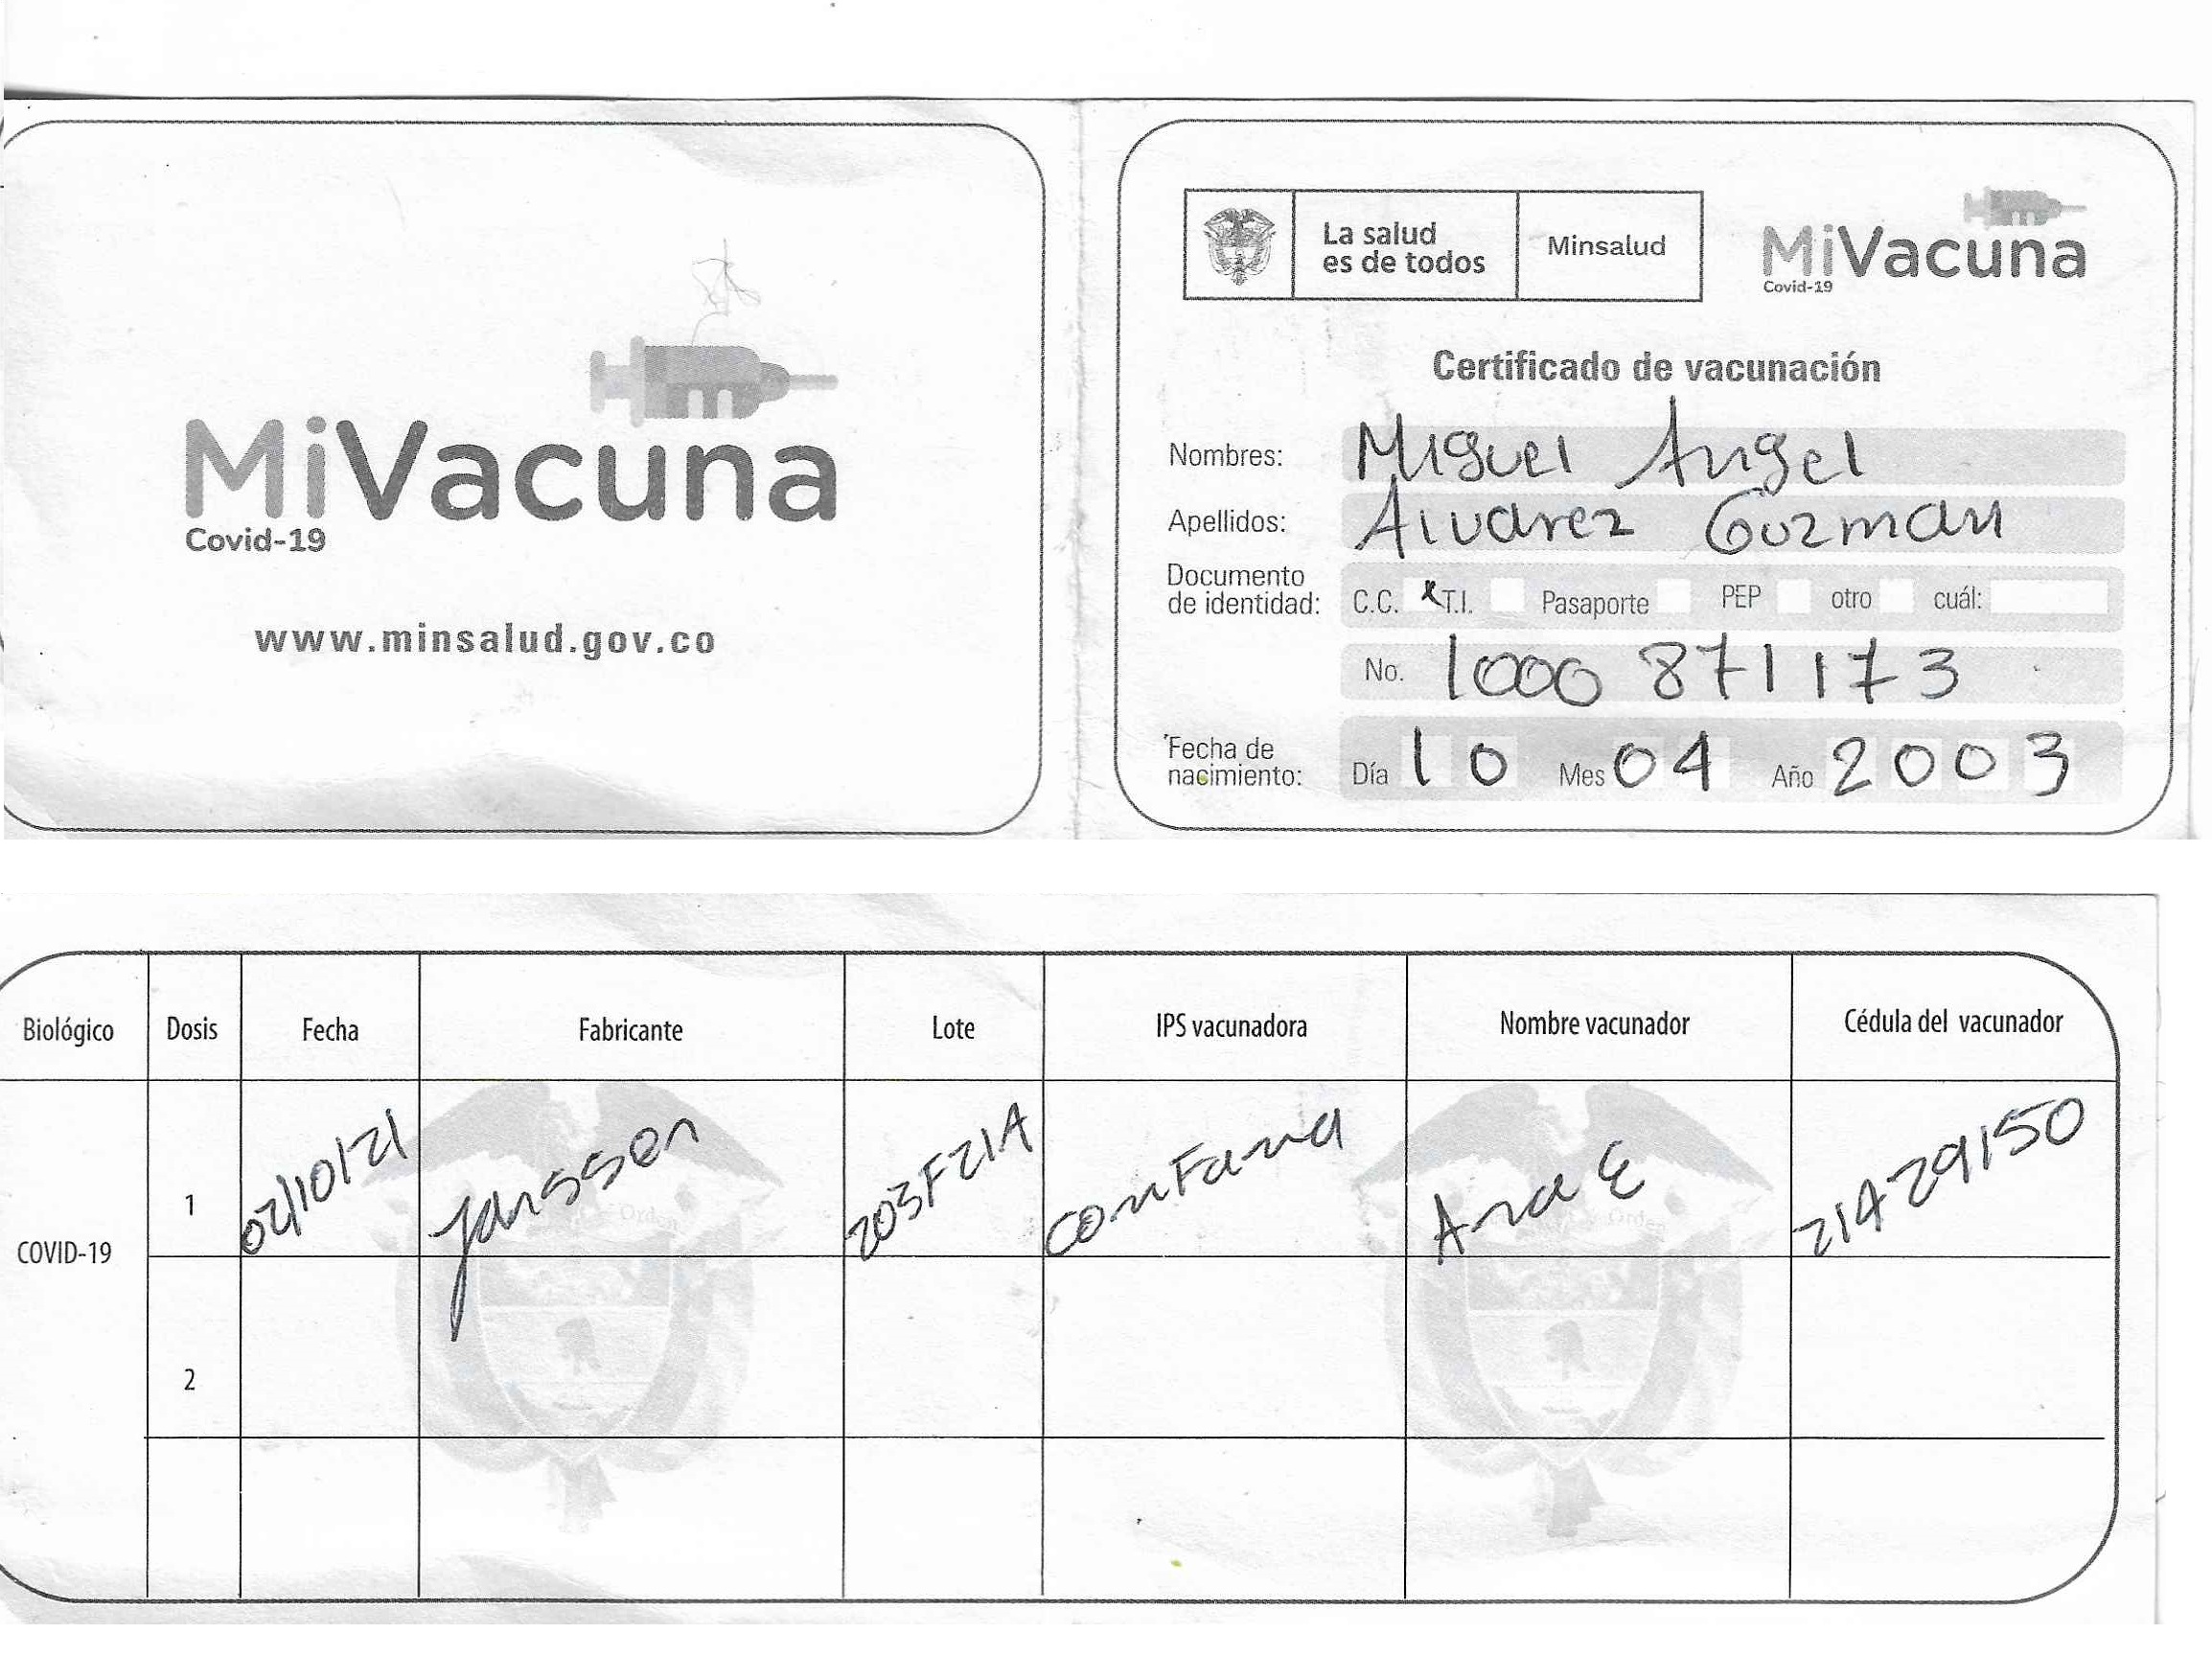 MiVacuna
Covid-19
www.minsalud.gov.co
La salud
es de todos
Minsalud
MiVacuna
Covid-19
Certificado de vacunación
Nombres: Miguel Angel
Apellidos: Alvarez Guzman
Documento
de identidad: C.C. x T.I. Pasaporte PEP otro cuál:
No. 1000 871173
Fecha de
nacimiento: Día 10 Mes 04 Año 2003
Biológico Dosis Fecha Fabricante Lote IPS vacunadora Nombre vacunador Cédula del vacunador
COVID-19
1 02/10/21 Janssen 203F21A comFama Ana E 21429150
2